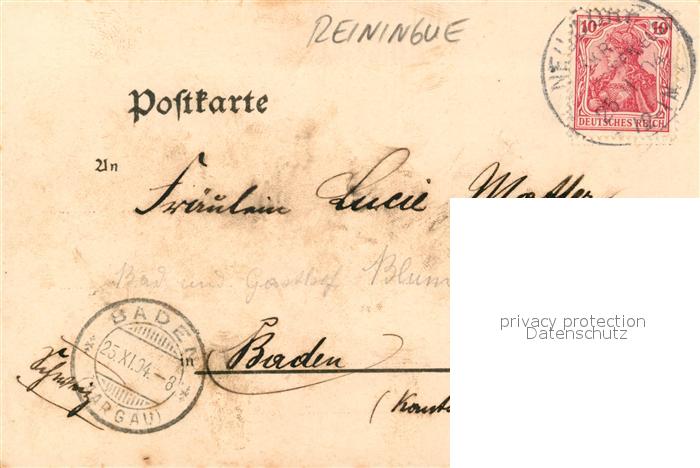 REININGUE
10 10
DEUTSCHES REICH
Postkarte
An
Fräulein Lucie
Bad und Gasthof Blum
privacy protection
Datenschutz
BADEN
25.XI.04.-8
(AARGAU)
in Baden
Schweiz
(Kant